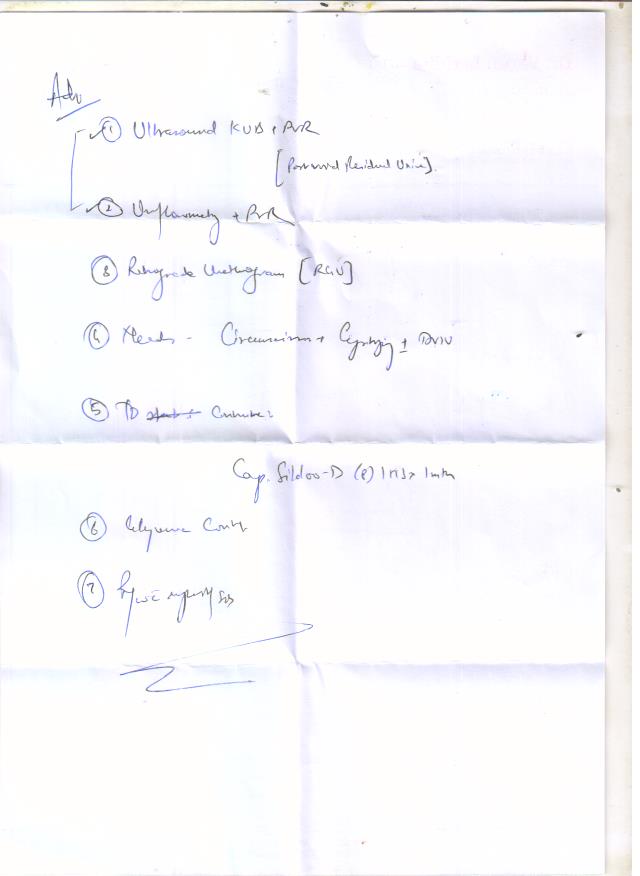 Adv
① Ultrasound KUB + PVR
[Postvoid Residual Urine].
② Uroflowmetry + PVR
③ Retrograde Urethrogram [RGU]
④ Needs - Circumcision + Cystoscopy ± DVIU
⑤ TO Continue:
Cap. Sildoo-D (8) 1 HS x 1 mth
⑥ Glycemic Control
⑦ R/w c reports SOS